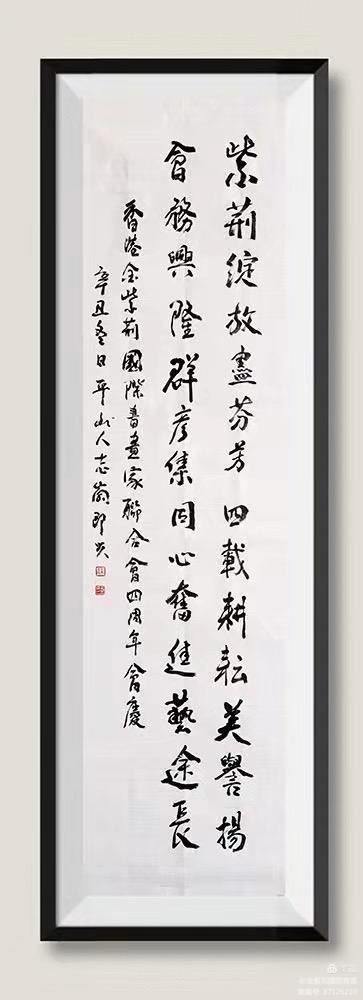 紫荊綻放盡芬芳四載耕耘美譽揚
會務興隆群彥集同心奮進藝途長
香港金紫荊國際書畫家聯合會四周年會慶
辛丑冬日平山人志